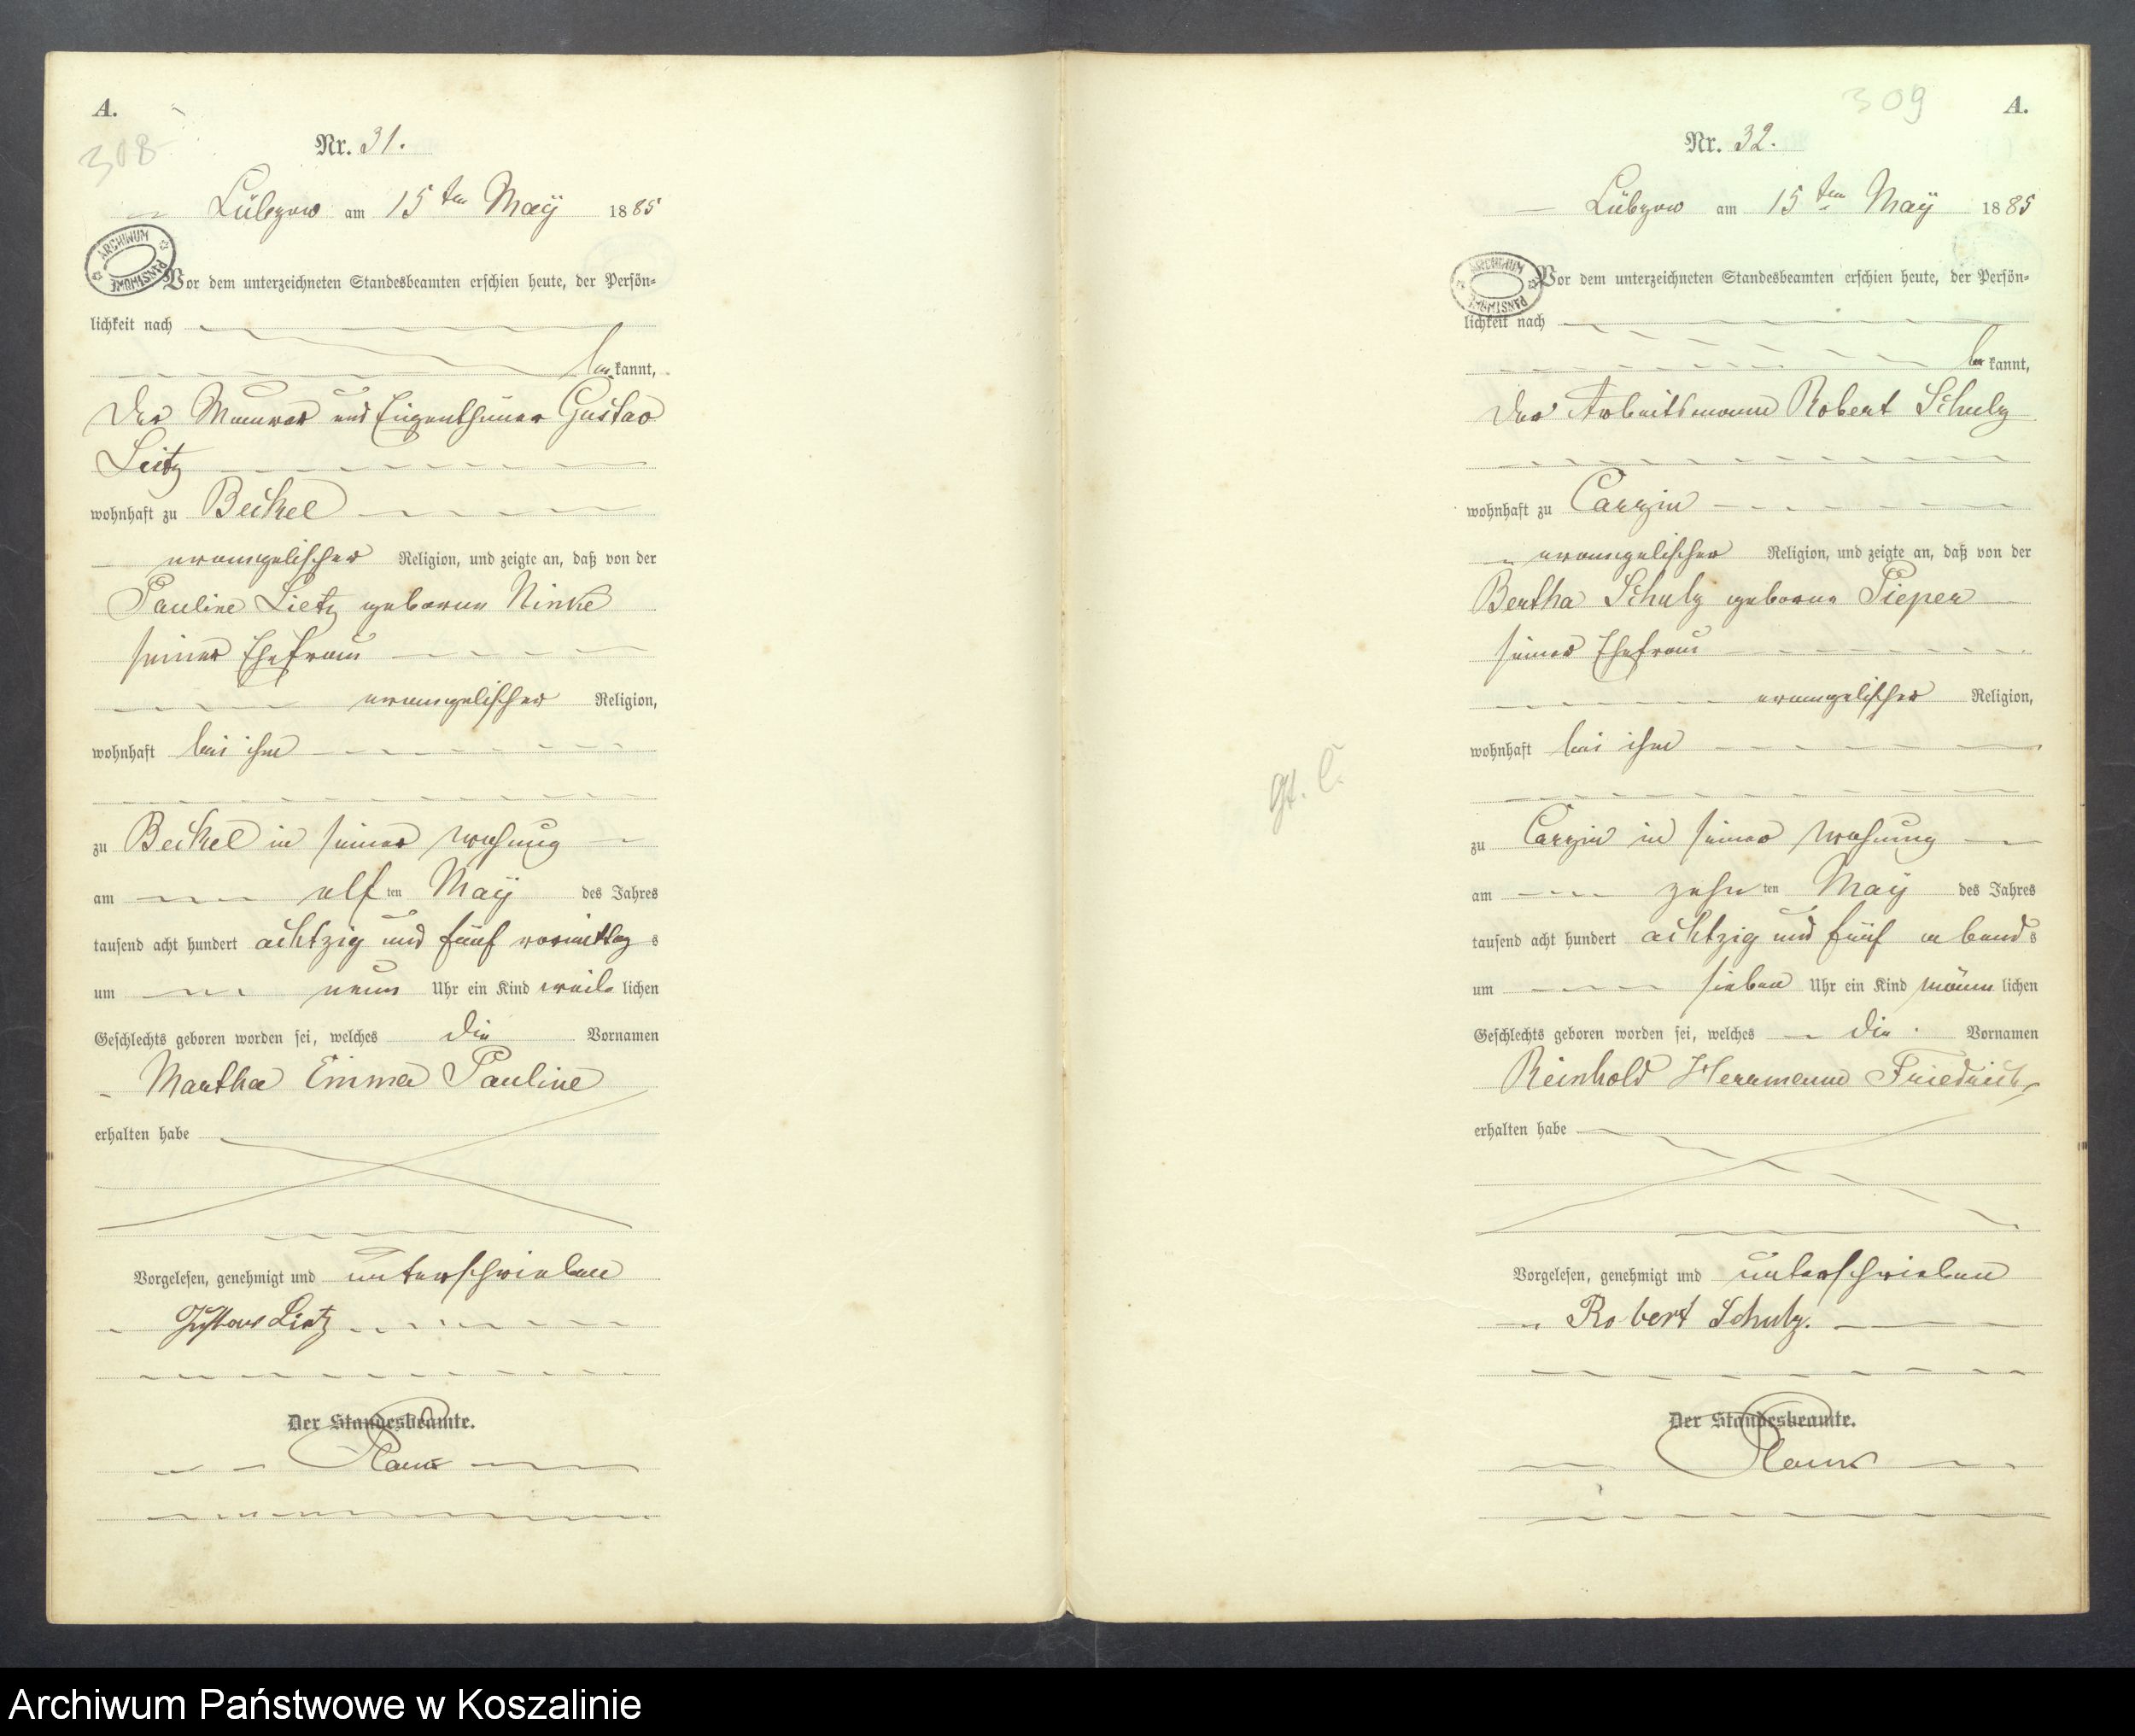 A.
308
Nr. 31.
Lübzow am 15ten Maÿ 1885
ARCHIWUM PAŃSTWOWE
Vor dem unterzeichneten Standesbeamten erschien heute, der Persön-
lichkeit nach
be kannt,
der Maurer und Eigenthümer Gustav
Lietz
wohnhaft zu Beckel
evangelischer Religion, und zeigte an, daß von der
Pauline Lietz geborene Ninke
seiner Ehefrau
evangelischer Religion,
wohnhaft bei ihm
zu Beckel in seiner Wohnung
am elf ten Maÿ des Jahres
tausend acht hundert achtzig und fünf vormittag s
um neun Uhr ein Kind weib lichen
Geschlechts geboren worden sei, welches die Vornamen
Martha Emma Pauline
erhalten habe
Vorgelesen, genehmigt und unterschrieben
Gustav Lietz
Der Standesbeamte.
309
A.
Nr. 32.
Lübzow am 15ten Maÿ 1885
ARCHIWUM PAŃSTWOWE
Vor dem unterzeichneten Standesbeamten erschien heute, der Persön-
lichkeit nach
be kannt,
der Arbeitsmann Robert Schulz
wohnhaft zu Carzin
evangelischer Religion, und zeigte an, daß von der
Bertha Schulz geborne Pieper
seiner Ehefrau
evangelischer Religion,
wohnhaft bei ihm
zu Carzin in seiner Wohnung
am zehn ten Maÿ des Jahres
tausend acht hundert achtzig und fünf abend s
um sieben Uhr ein Kind männ lichen
Geschlechts geboren worden sei, welches die Vornamen
Reinhold Herrmann Friedrich
erhalten habe
Vorgelesen, genehmigt und unterschrieben
Robert Schulz.
Der Standesbeamte.
Archiwum Państwowe w Koszalinie